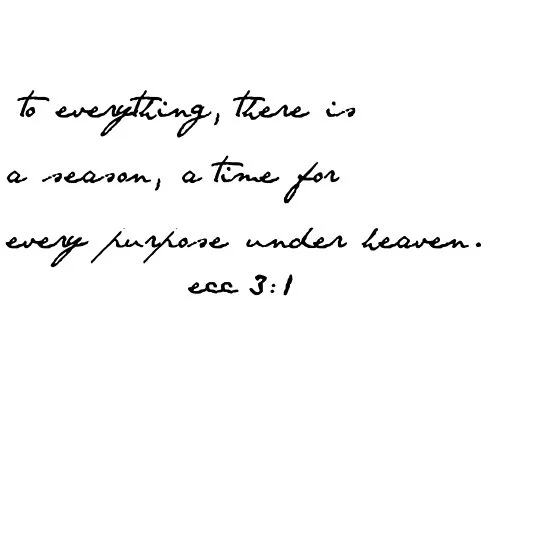 to everything, there is
a season, a time for
every purpose under heaven.
ecc 3:1